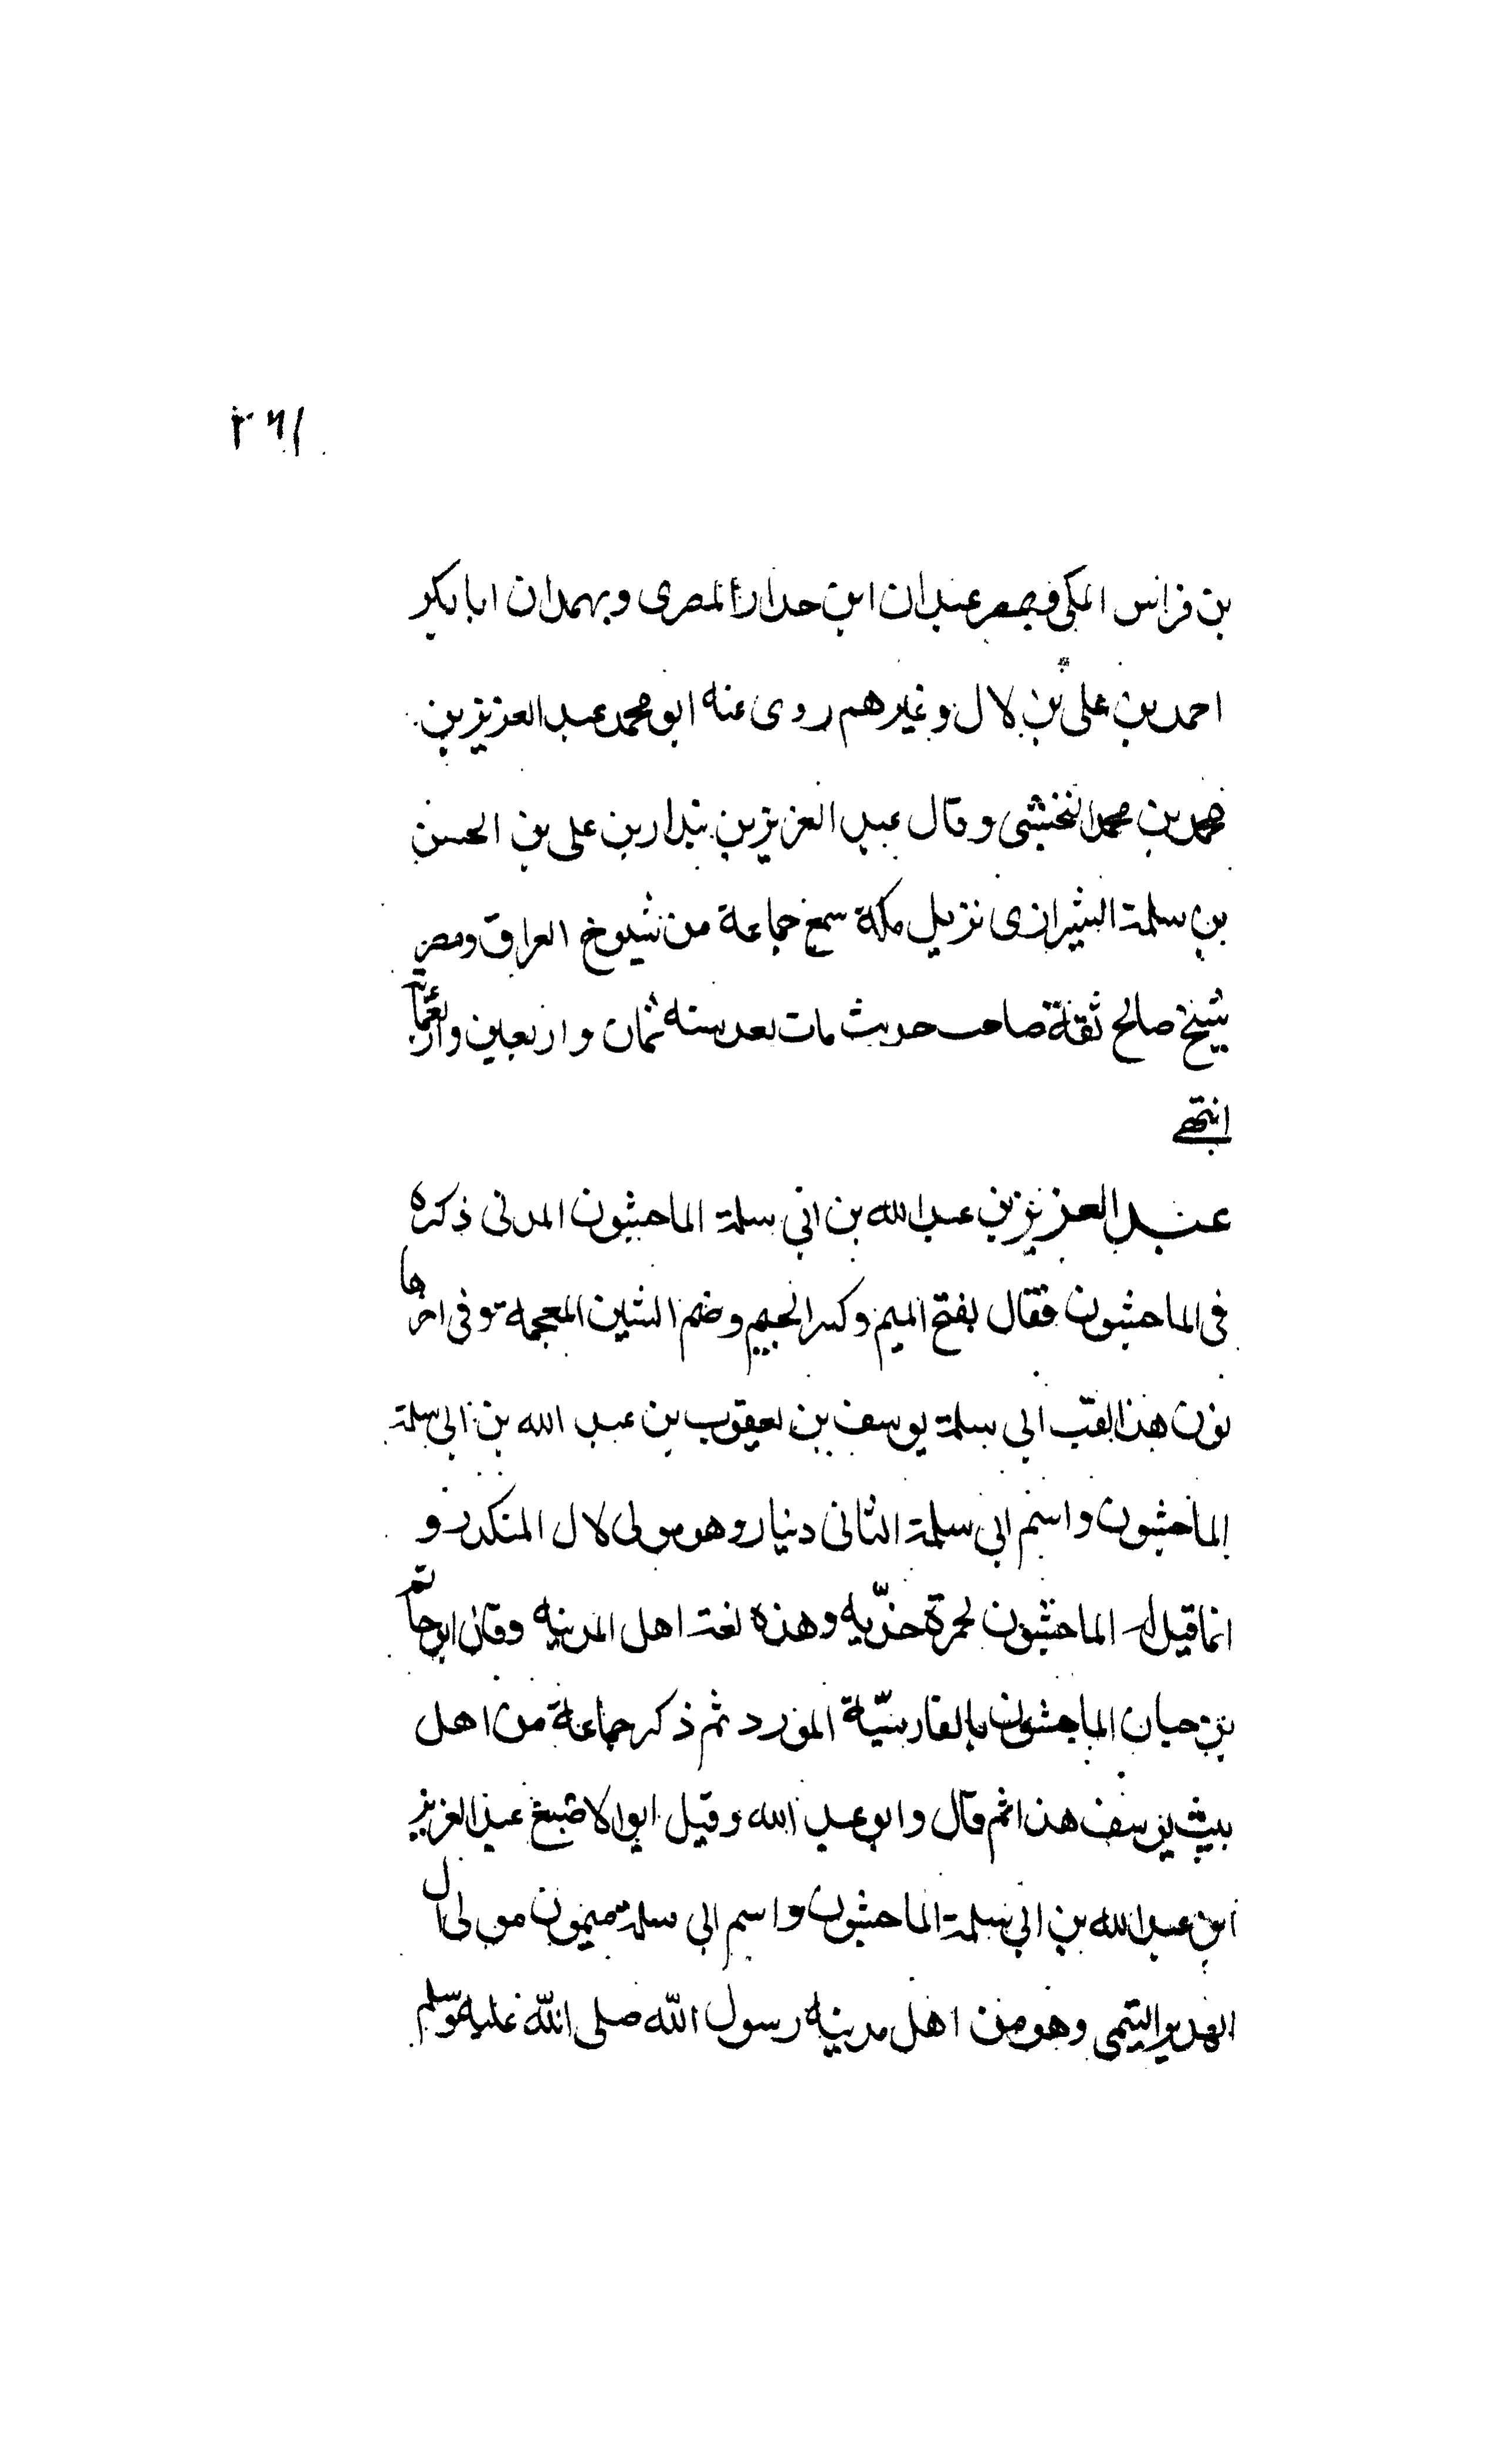 ٢٦١
بن فراس المكى وبمصر عبدان ابن حدار المصرى وبهمدان ابا بكر
احمد بن على بن لال وغيرهم روى عنه ابو محمد عبد العزيز بن
محمد بن محمد النخشبى وقال عبد العزيز بن بندار بن على بن الحسن
بن سلمة الشيرازى نزيل مكة سمع جماعة من شيوخ العراق ومصر
شيخ صالح ثقة صاحب حديث مات بعد سنه ثمان واربعين واربعمائة
انتهى
عبد العزيز بن عبد الله بن ابى سلمة الماجشون المدنى ذكره
فى الماجشون فقال بفتح الميم وكسر الجيم وضم الشين المعجمة وفى اخرها
نون هذا لقب ابى سلمة يوسف بن يعقوب بن عبد الله بن ابى سلمة
الماجشون واسم ابى سلمة الثانى دينار وهو مولى لال المنكدر و
انما قيل له الماجشون لحمرة خدّيه وهذه لغة اهل المدينه وقال ابو حاتم
بن حبان الماجشون بالفارسيّة المورد ثم ذكر جماعة من اهل
بيت يوسف هذا ثم قال وابو عبد الله وقيل ابو الاصبغ عبد العزيز
ابن عبد الله بن ابى سلمة الماجشون واسم ابى سلمة ميمون مولى ال
الهدير التيمى وهو من اهل مدينه رسول الله صلى الله عليه وسلم